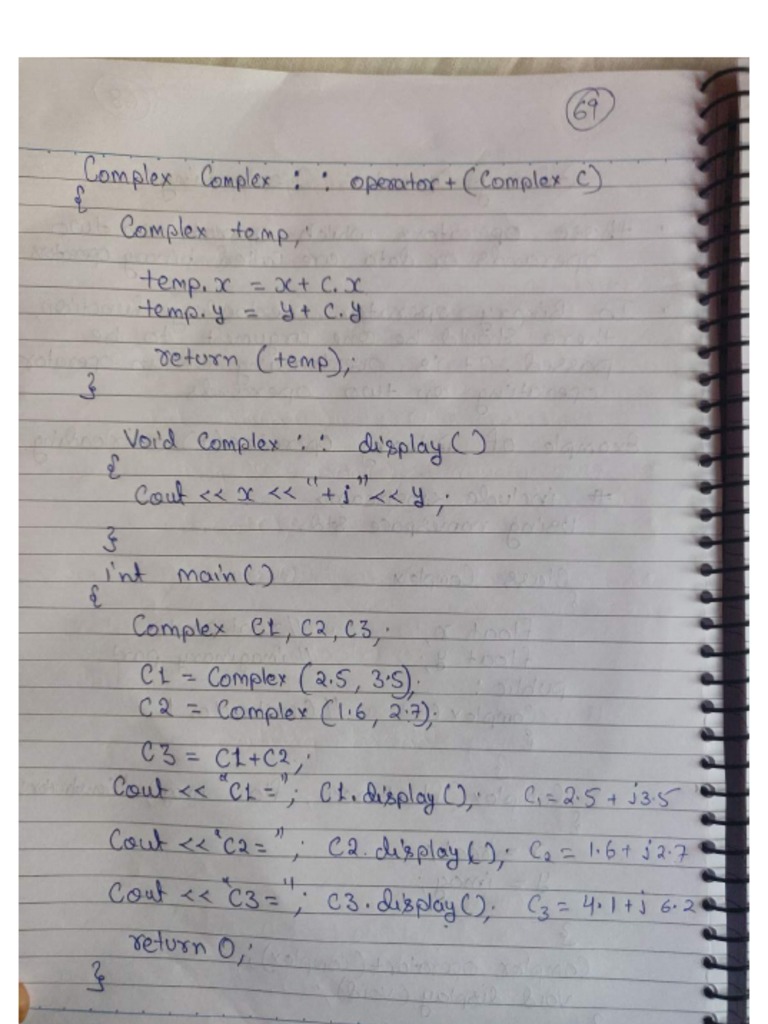 69
Complex Complex : : operator+ (Complex C)
{
Complex temp;
temp.x = x + c.x
temp.y = y + c.y
return (temp);
}
Void Complex : : display ( )
{
Cout << x << "+j" << y ;
}
int main ( )
{
Complex C1, C2, C3;
C1 = Complex (2.5, 3.5);
C2 = Complex (1.6, 2.7);
C3 = C1+C2;
Cout << "C1 = "; C1.display ( ); C₁ = 2.5 + j3.5
Cout << "C2 = "; C2.display ( ); C₂ = 1.6 + j2.7
Cout << "C3 = "; C3.display ( ); C₃ = 4.1 + j 6.2
return 0;
}